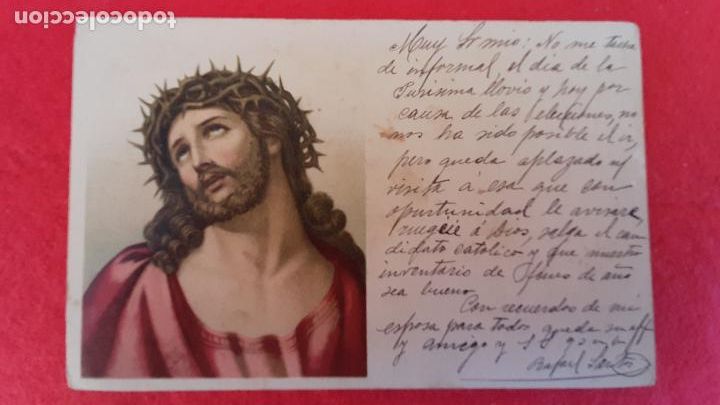 todocoleccion
todocoleccion.net
Muy Sr mio: No me tache
de informal, el dia de la
Purisima llovió y hoy por
causa de las elecciones, no
nos ha sido posible el ir,
pero queda aplazada
visita á esa que con
oportunidad le avisaré,
ruegue á Dios, salga el can
didato católico y que nuestro
inventario de de año
sea bueno
Con recuerdos de mi
esposa para todos, queda su aff
y amigo y S S q s m b
Rafael